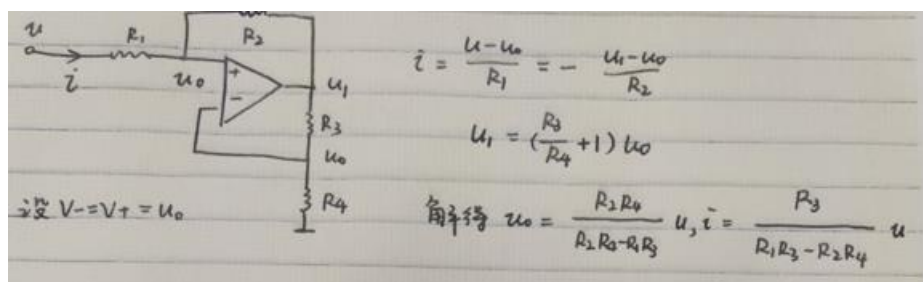 u
R₁
R₂
i
u₀
+
-
u₁
R₃
u₀
R₄
设 V-=V+=u₀
i = (u-u₀)/R₁ = - (u₁-u₀)/R₂
u₁ = (R₃/R₄ +1) u₀
解得 u₀ = R₂R₄/(R₂R₄-R₁R₃) u, i = R₃/(R₁R₃-R₂R₄) u